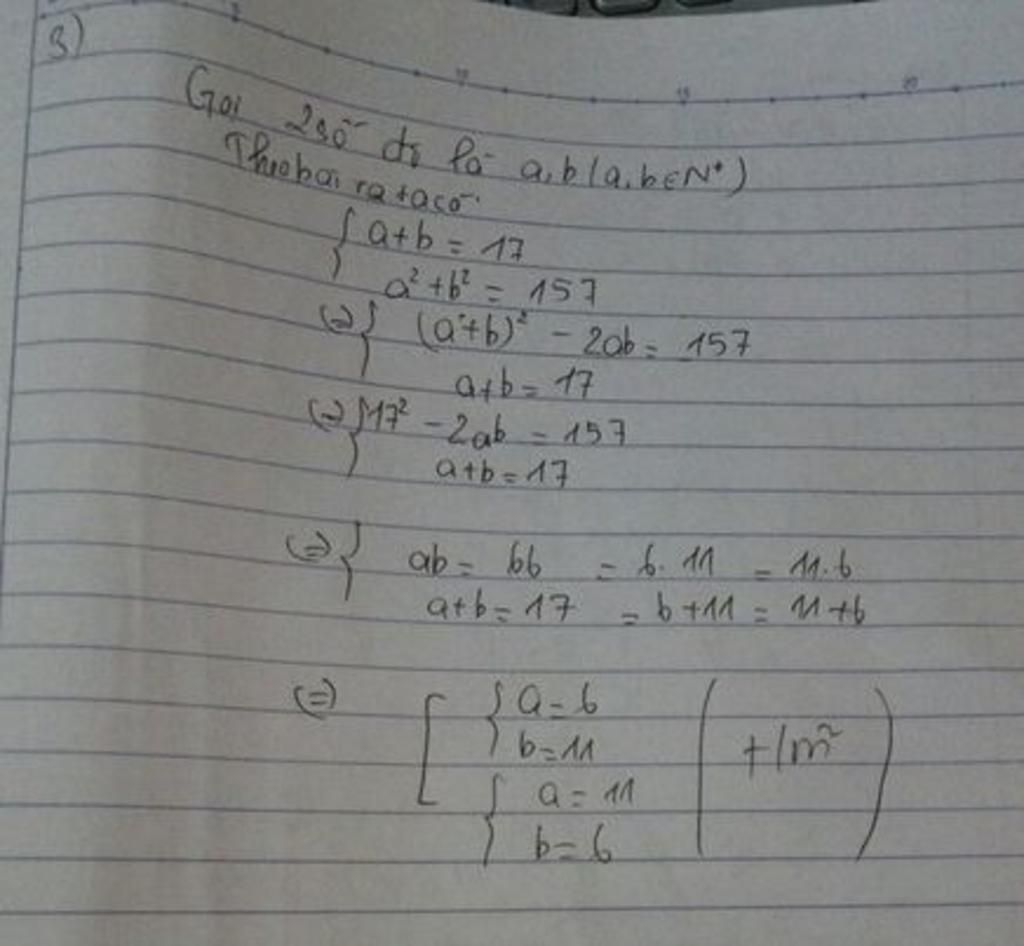 3)
Gọi 2 số đó là a,b (a,b∈N*)
Theo bài ra ta có
{ a+b = 17
a² + b² = 157
(=) { (a+b)² - 2ab = 157
a+b = 17
(=) { 17² - 2ab = 157
a+b = 17
(=) { ab = 66 = 6.11 = 11.6
a+b = 17 = 6+11 = 11+6
(=) [ { a = 6
b = 11
{ a = 11
b = 6
( t/m )